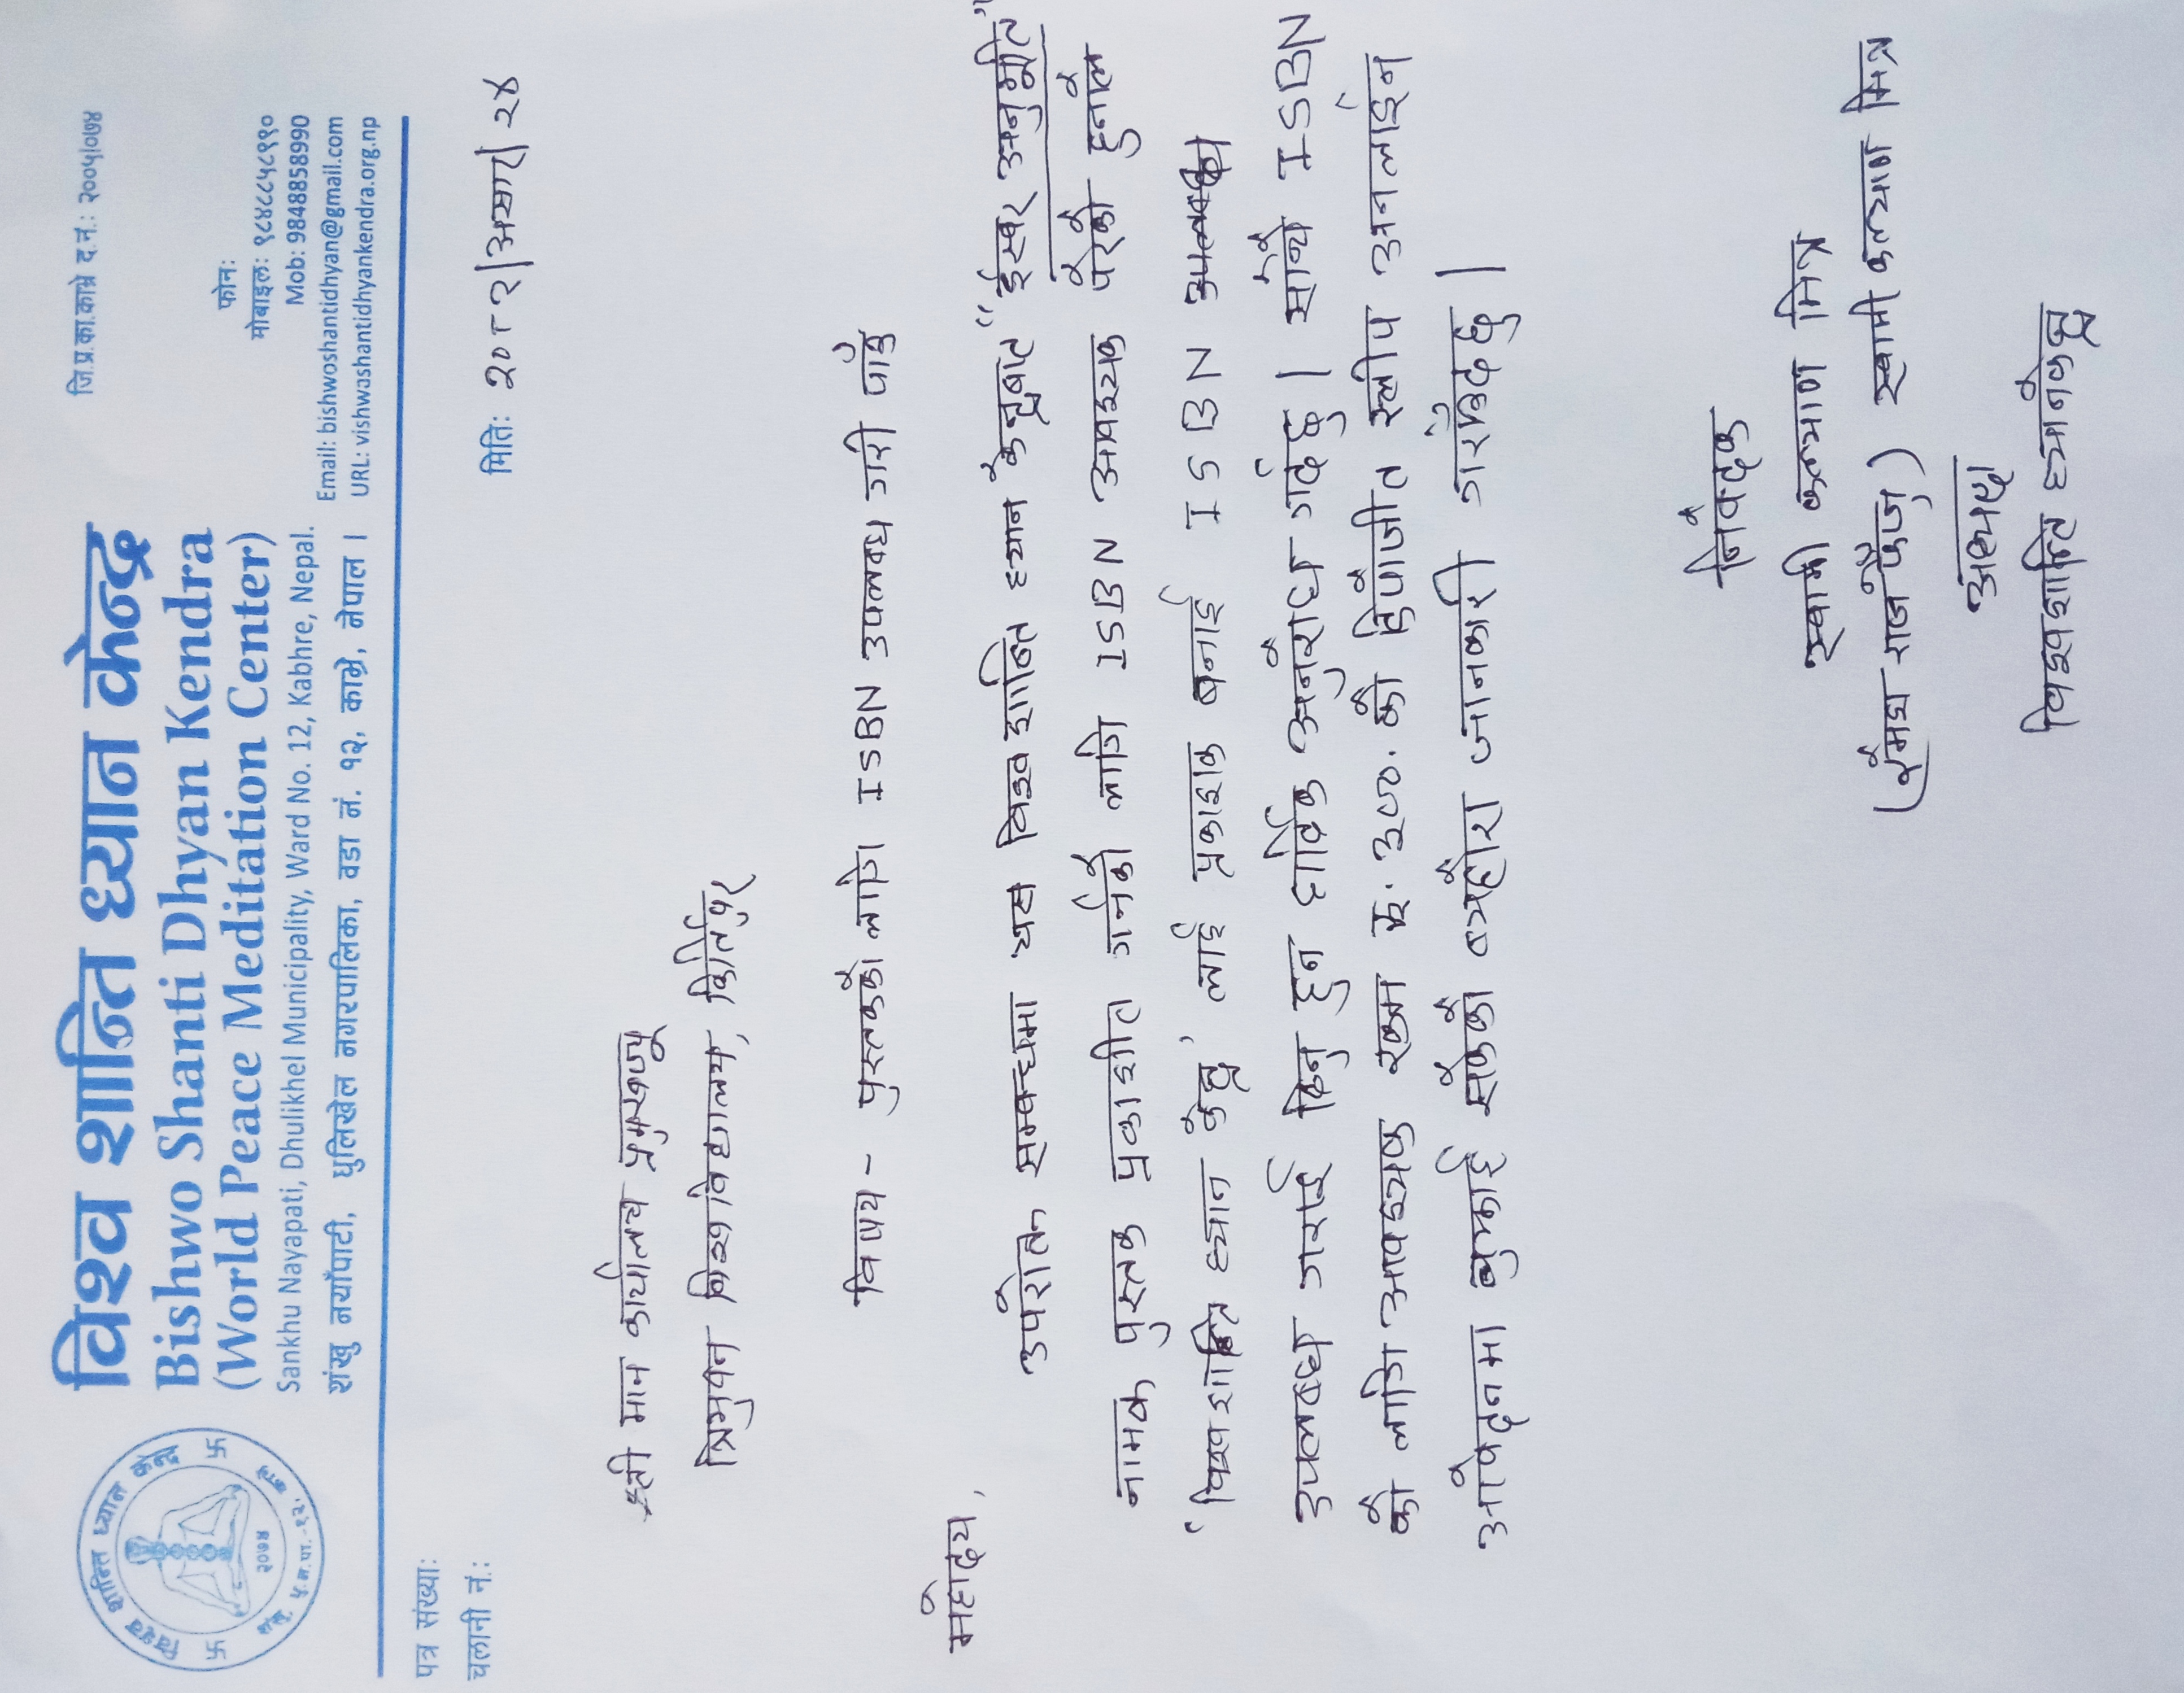 जि.प्र.का.काभ्रे द.नं.: २००५/०७४
विश्व शान्ति ध्यान केन्द्र
Bishwo Shanti Dhyan Kendra
(World Peace Meditation Center)
Sankhu Nayapati, Dhulikhel Municipality, Ward No. 12, Kabhre, Nepal.
शंखु नयाँपाटी, धुलिखेल नगरपालिका, वडा नं. १२, काभ्रे, नेपाल ।
फोन:
मोबाइल: ९८४८८५८९९०
Mob: 9848858990
Email: bishwoshantidhyan@gmail.com
URL: vishwashantidhyankendra.org.np
विश्व शान्ति ध्यान केन्द्र
२०७४
पत्र संख्या:
चलानी नं.:
मिति: २०८२/असार/२४
श्री मान कार्यालय प्रमुखज्यू
त्रिभुवन विश्वविद्यालय, किर्तिपुर
विषय - पुस्तकको लागि ISBN उपलब्ध गरी पाउँ
महोदय,
उपरोक्त सम्बन्धमा यस विश्व शान्ति ध्यान केन्द्रबाट "ईश्वर अनुभूति"
नामक पुस्तक प्रकाशीत गर्नको लागि ISBN आवश्यक परेको हुनाले
'विश्व शान्ति ध्यान केन्द्र' लाई प्रकाशक बनाई ISBN
उपलब्ध गराई दिनु हुन हार्दिक अनुरोध गर्दछु । साथै ISBN
को लागि आवश्यक रकम रू. ३००. को डिपोजीत स्लीप अनलाईन
आवेदनमा बुझाई सकेको व्यहोरा जानकारी गराउँदछु ।
निवेदक
स्वामी कल्याण मित्र
राज कँजु) स्वामी कल्याण मित्र
अध्यक्ष
विश्वशान्ति ध्यानकेन्द्र